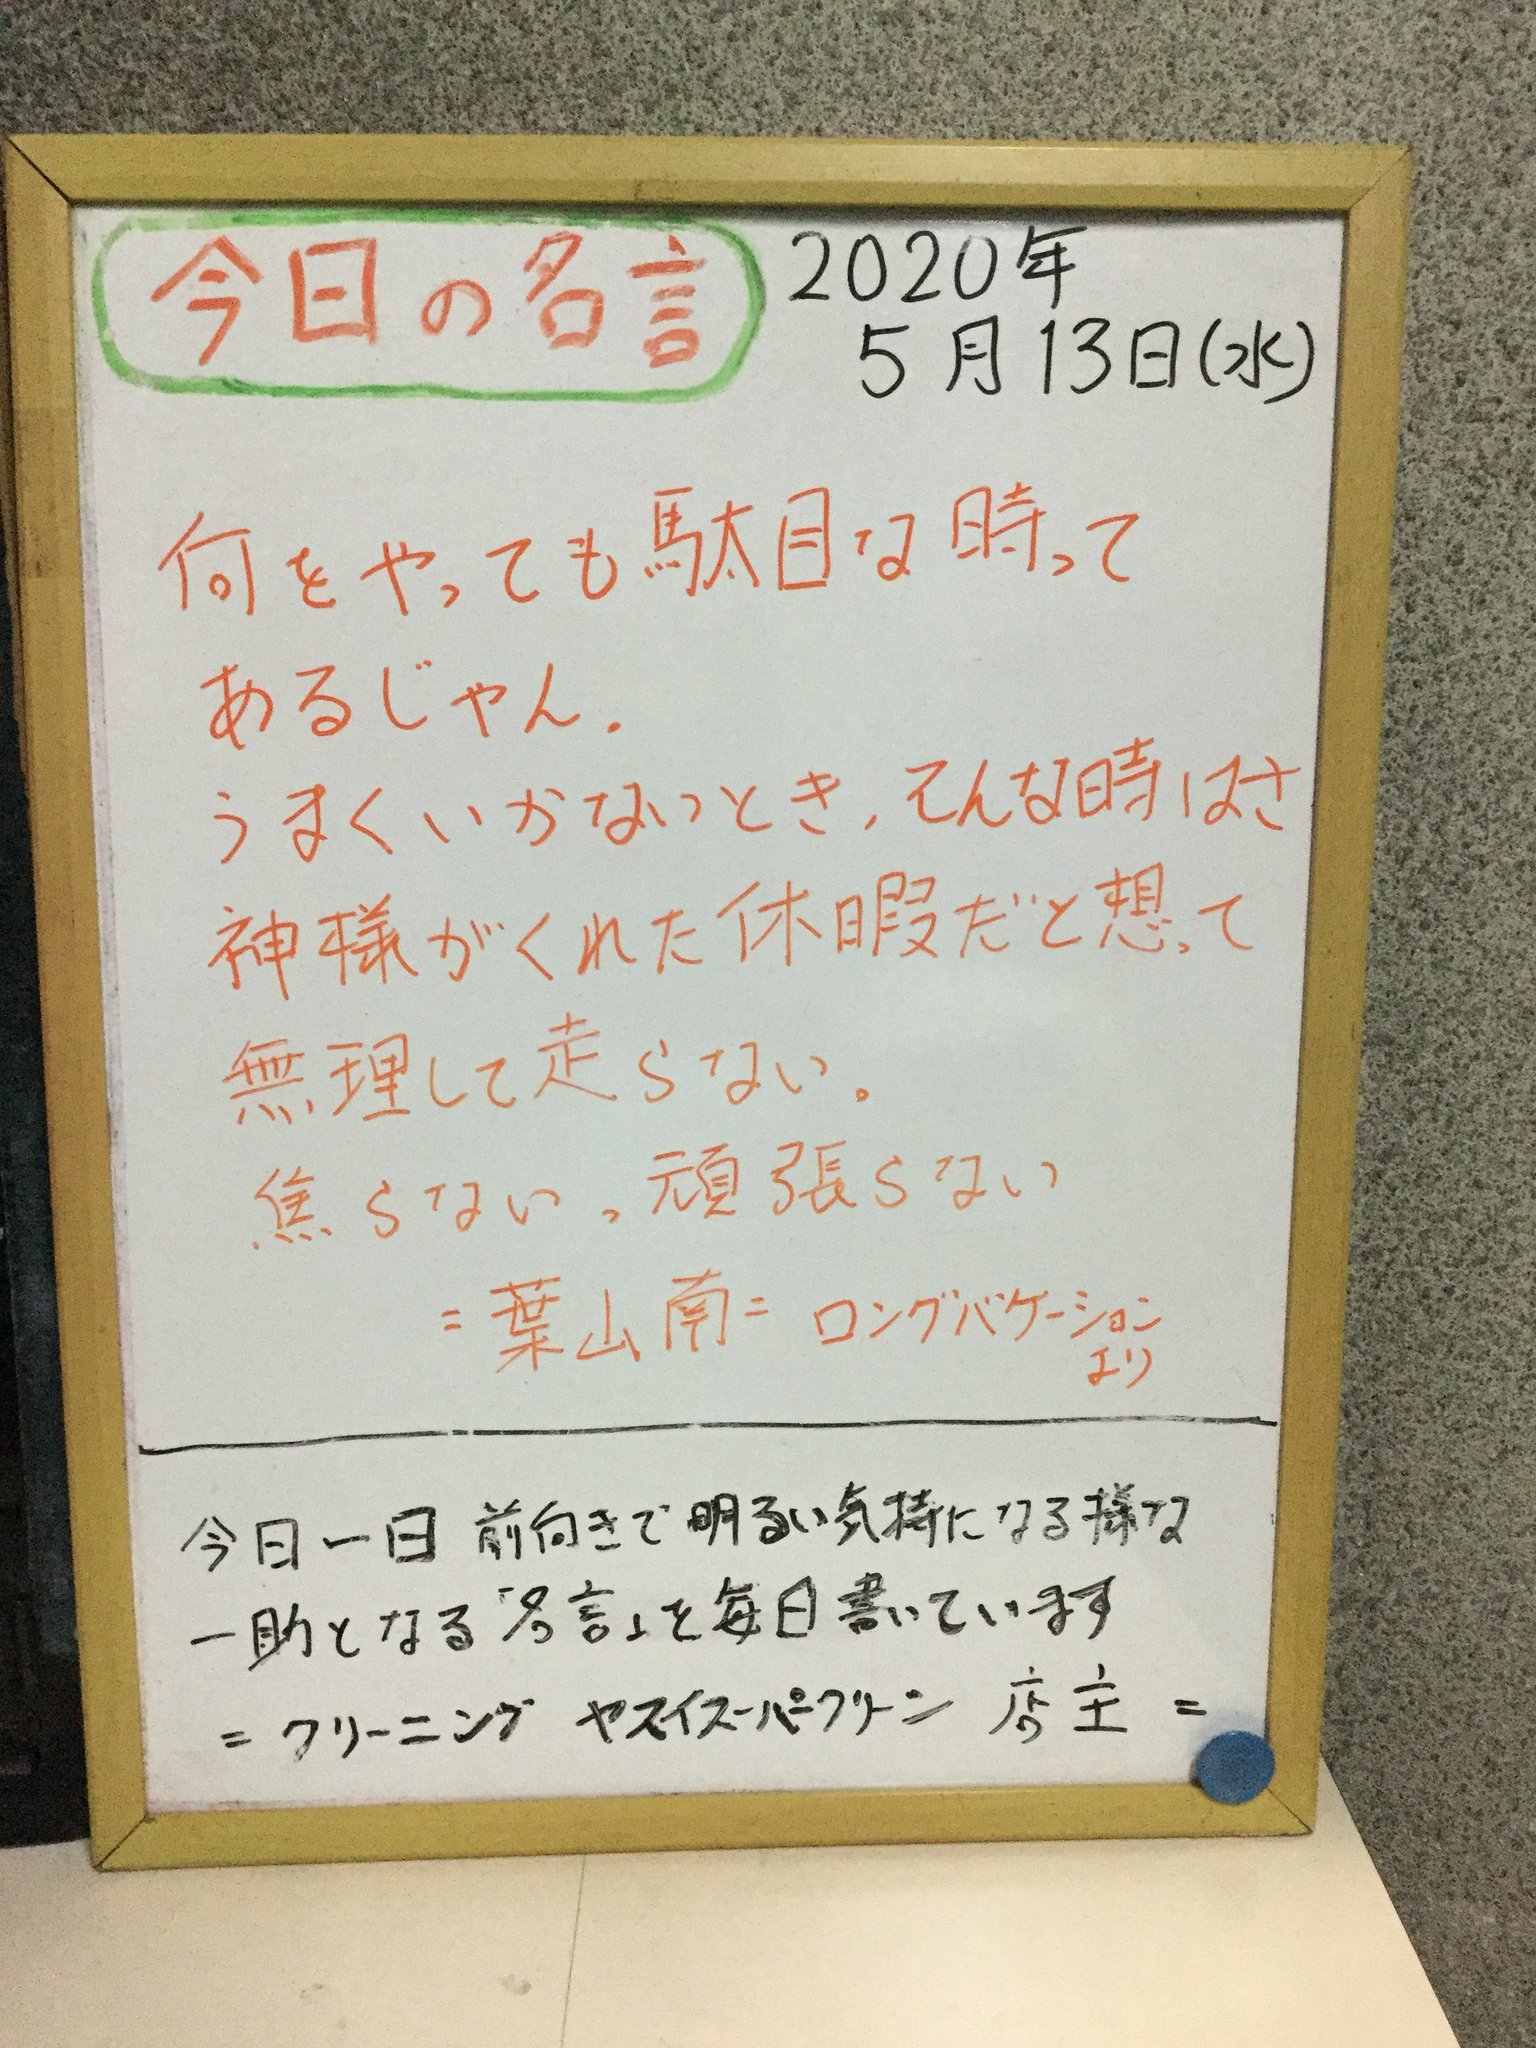 今日の名言
2020年
5月13日(水)
何をやっても駄目な時って
あるじゃん.
うまくいかないっとき、そんな時はさ
神様がくれた休暇だと想って
無理して走らない。
焦らない、頑張らない
=葉山南= ロングバケーション
より
今日一日 前向きで明るい気持になる様な
一助となる「名言」を毎日書いています
=クリーニング ヤスイスーパークリーン 店主=